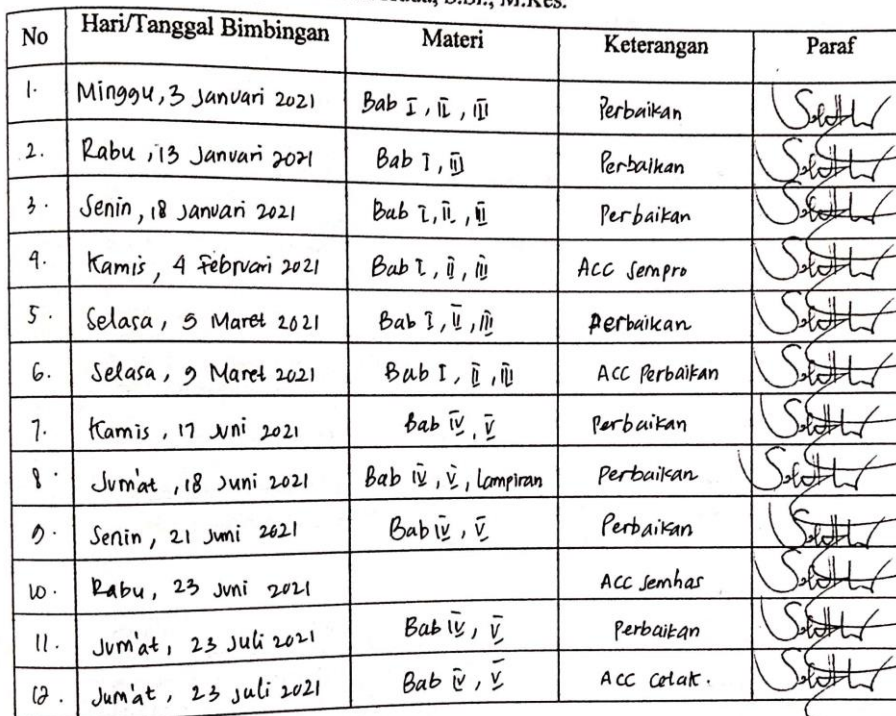 S.Si., M.Kes.
No Hari/Tanggal Bimbingan Materi Keterangan Paraf
1. Minggu, 3 Januari 2021 Bab I, II, III Perbaikan
2. Rabu, 13 Januari 2021 Bab I, III Perbaikan
3. Senin, 18 Januari 2021 Bab I, II, III Perbaikan
4. Kamis, 4 Februari 2021 Bab I, II, III ACC Sempro
5. Selasa, 9 Maret 2021 Bab I, II, III Perbaikan
6. Selasa, 9 Maret 2021 Bab I, II, III Acc Perbaikan
7. Kamis, 17 Juni 2021 Bab IV, V Perbaikan
8. Jum'at, 18 Juni 2021 Bab IV, V, Lampiran Perbaikan
9. Senin, 21 Juni 2021 Bab IV, V Perbaikan
10. Rabu, 23 Juni 2021 Acc Semhas
11. Jum'at, 23 Juli 2021 Bab IV, V Perbaikan
12. Jum'at, 23 Juli 2021 Bab IV, V Acc Cetak.